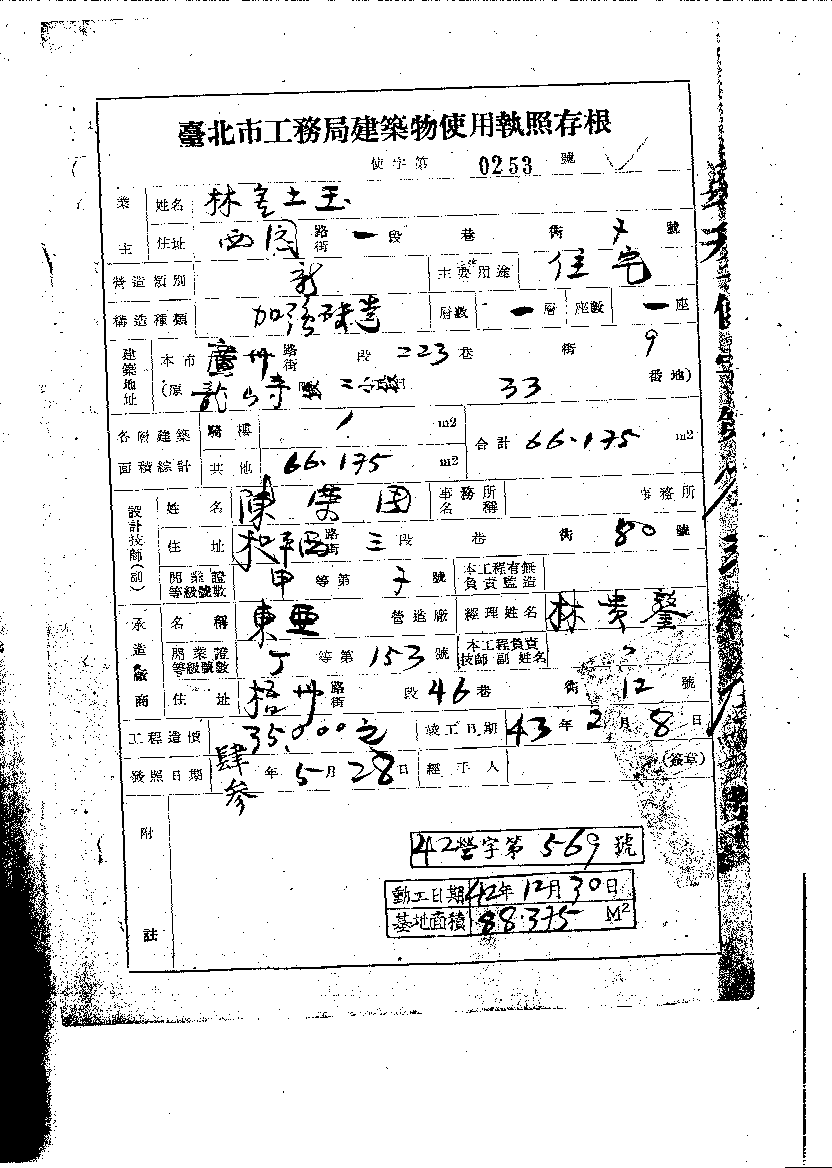 臺北市工務局建築物使用執照存根
使字第 0253 號
業主 姓名 林金土玉
住址 西園 路街 一段 巷 街 7 號
營造類別 新 主要用途 住宅
構造種類 加強磚造 層數 一層 座數 一座
建築地址 本市 廣州 路街 段 二23巷 街 9
(原 龍山寺 33 番地)
各附建築面積綜計 騎樓 / m2 合計 66.175 m2
其他 66.175 m2
設計技師(副) 姓名 陳榮周 事務所名稱 事務所
住址 和平西 路街 三段 巷 街 80 號
開業證等級號數 甲 等第 7 號 本工程有無負責監造
承造廠商 名稱 東亜 營造廠 經理姓名 林貴鑿
開業證等級號數 丁 等第 153 號 本工程負責技師副姓名
住址 梧州 路街 段 46巷 街 12 號
工程造價 35,000元 竣工日期 43年2月8日
發照日期 肆参年5月28日 經手人 (簽章)
附註
42營字第569號
動工日期 42年12月30日
基地面積 88.375 M²